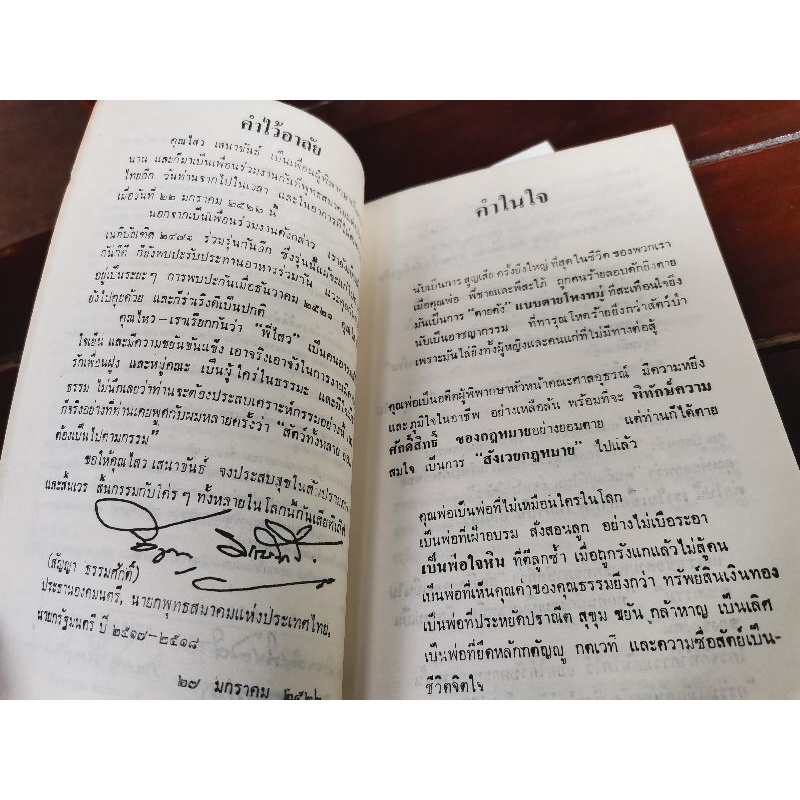 คำไว้อาลัย
คุณไสว เสนาขันธ์ เป็นเพื่อนผู้พิพากษา
นาน และก็มาเป็นเพื่อนร่วมงานกันที่พุทธสมาคม
ไทยอีก วันท่านจากไปในเวลา และในอาการที่ไม่
เมื่อวันที่ ๒๒ มกราคม ๒๕๒๒ นี้
นอกจากเป็นเพื่อนร่วมงานดังกล่าว เรายังเป็น
เนติบัณฑิต ๒๔๗๑ ร่วมรุ่นกันอีก ซึ่งรุ่นนี้แม้จะแก่
กันก็ดี ก็ยังพบปะรับประทานอาหารร่วมกัน
อยู่เป็นระยะๆ การพบปะกันเมื่อธันวาคม ๒๕๒๑
ยังไปคุยด้วย และก็ร่าเริงดีเป็นปกติ
คุณไสว–เราเรียกกันว่า "พี่ไสว" เป็นคน
ใจเย็น และมีความขยันขันแข็ง เอาจริงเอาจังในการงาน
รักเพื่อนฝูง และหมู่คณะ เป็นผู้ใคร่ในธรรมะ และ
ธรรม ไม่นึกเลยว่าท่านจะต้องประสบเคราะห์กรรมอย่างนี้
ก็จริงอย่างที่ท่านเคยพูดกับผมหลายครั้งว่า "สัตว์ทั้งหลาย
ต้องเป็นไปตามกรรม"
ขอให้คุณไสว เสนาขันธ์ จงประสบสุขในสัมปรายภพ
และสิ้นเวร สิ้นกรรมกับใครๆ ทั้งหลายในโลกนี้กันเสียทีเถิด
(สัญญา ธรรมศักดิ์)
ประธานองคมนตรี, นายกพุทธสมาคมแห่งประเทศไทย,
นายกรัฐมนตรี ปี ๒๕๑๗–๒๕๑๘
๒๗ มกราคม ๒๕๒๒
คำในใจ
นับเป็นการสูญเสีย ครั้งยิ่งใหญ่ ที่สุดในชีวิต ของพวกเรา
เมื่อคุณพ่อ พี่ชายและพี่สะใภ้ ถูกคนร้ายลอบดักยิงตาย
มันเป็นการ "ตายดัง" แบบตายโหงหมู่ ที่สะเทือนใจยิ่ง
นับเป็นอาชญากรรม ที่ทารุณโหดร้ายยิ่งกว่าสัตว์ป่า
เพราะมันไล่ยิงทั้งผู้หญิงและคนแก่ที่ไม่มีทางต่อสู้
คุณพ่อเป็นอดีตผู้พิพากษาหัวหน้าคณะศาลอุธรณ์ มีความหยิ่ง
และภูมิใจในอาชีพ อย่างเหลือล้น พร้อมที่จะ พิทักษ์ความ
ศักดิ์สิทธิ์ ของกฎหมายอย่างยอมตาย แต่ท่านก็ได้ตาย
สมใจ เป็นการ "สังเวยกฎหมาย" ไปแล้ว
คุณพ่อเป็นพ่อที่ไม่เหมือนใครในโลก
เป็นพ่อที่เฝ้าอบรม สั่งสอนลูก อย่างไม่เบื่อระอา
เป็นพ่อใจหิน ที่ตีลูกซ้ำ เมื่อถูกรังแกแล้วไม่สู้คน
เป็นพ่อที่เห็นคุณค่าของคุณธรรมยิ่งกว่า ทรัพย์สินเงินทอง
เป็นพ่อที่ประหยัดปราณีต สุขุม ขยัน กล้าหาญ เป็นเลิศ
เป็นพ่อที่ยึดหลักกตัญญู กตเวที และความซื่อสัตย์เป็น-
ชีวิตจิตใจ